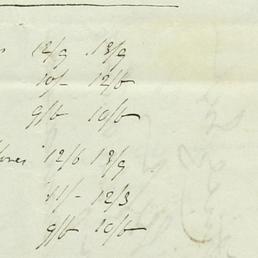 13/9 13/9
10/- 12/6
9/6 10/6
12/6 13/9
11/- 12/3
9/6 10/6